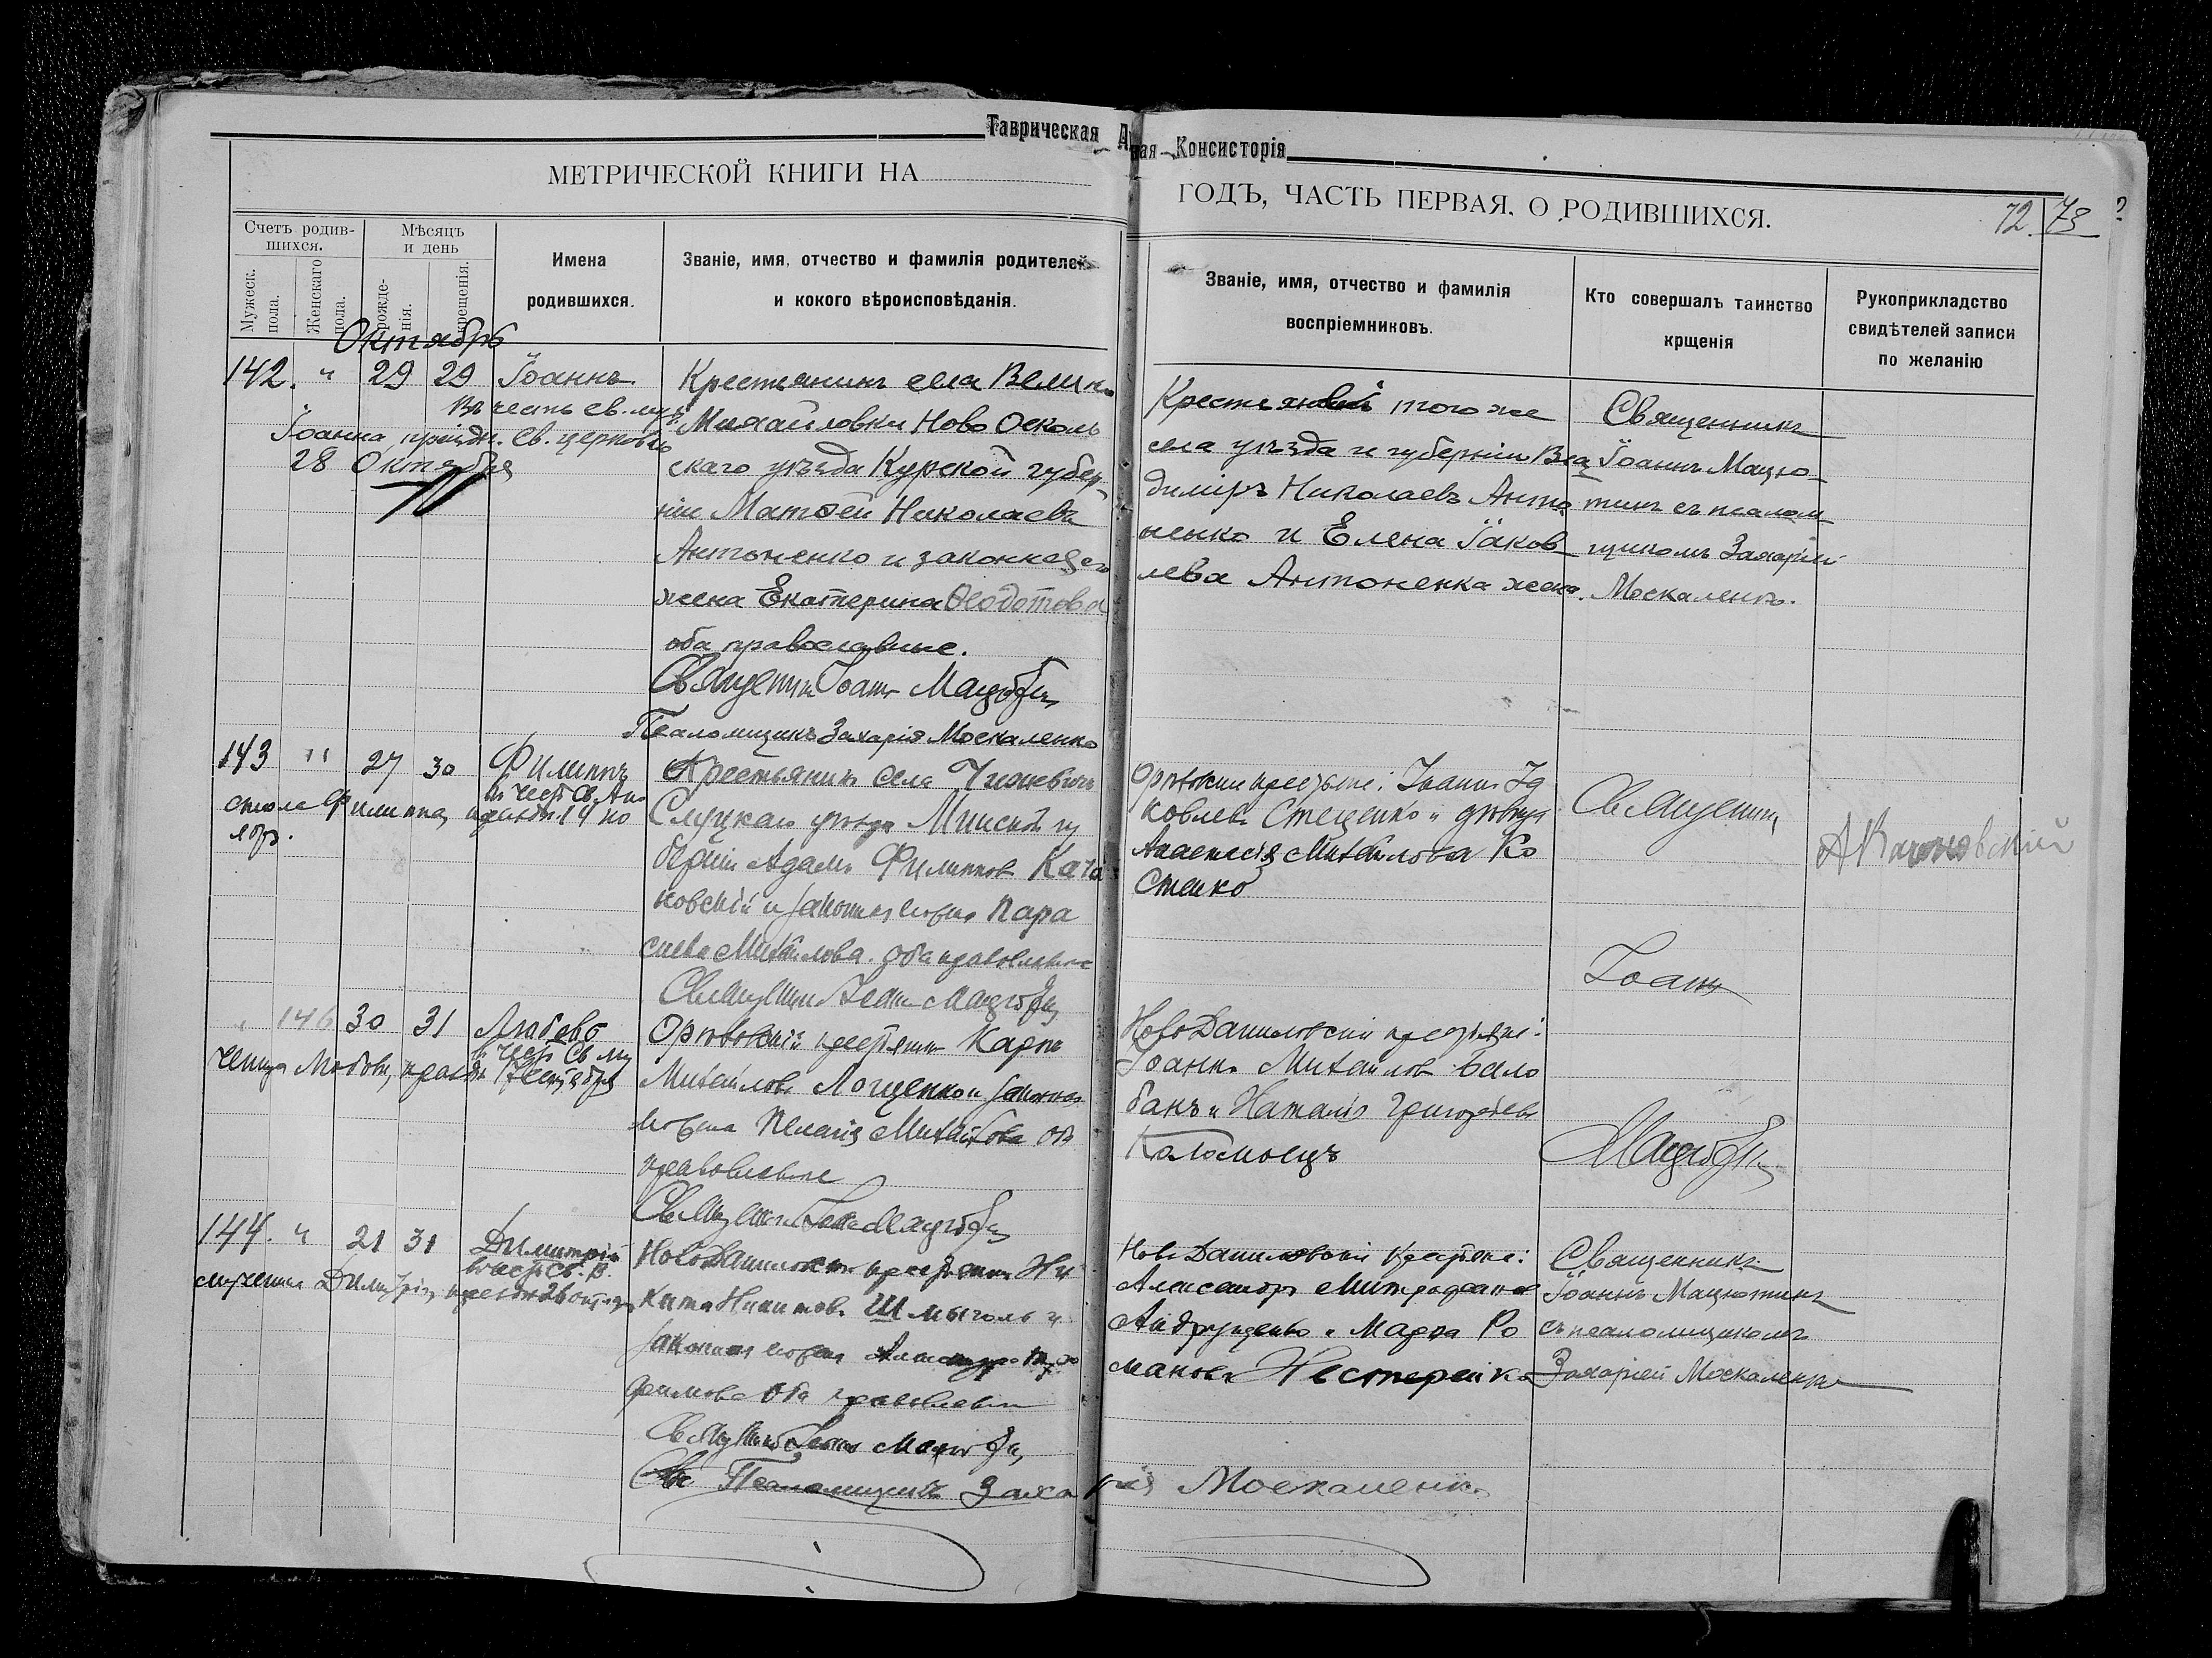 Таврическая
ная Консисторія
МЕТРИЧЕСКОЙ КНИГИ НА
ГОДЪ, ЧАСТЬ ПЕРВАЯ, О РОДИВШИХСЯ.
72. 73
Счетъ родив-
шихся.
Мужеск.
пола.
Женскаго
пола.
Мѣсяцъ
и день
рожде-
нія.
крещенія.
Имена
родившихся.
Званіе, имя, отчество и фамилія родителей
и кокого вѣроисповѣданія.
Званіе, имя, отчество и фамилія
воспріемниковъ.
Кто совершалъ таинство
крщенія
Рукоприкладство
свидѣтелей записи
по желанію
Октябрь
142. " 29 29 Іоаннъ
Въ честь св. муч.
Іоанна, праздн. св. церковью
28 Октября
Крестьянинъ села Велико
Михайловки Ново Осколь
скаго уѣзда Курской губер-
ніи Матѳей Николаевъ
Антоненко и законная его
жена Екатерина Ѳеодотова
оба православные.
Священникъ Іоаннъ Мацютинъ
Псаломщикъ Захарія Москаленко
Крестьяне того же
села уѣзда и губерніи Вла
диміръ Николаевъ Анто
ненко и Елена Іаков-
лева Антоненка жена.
Священникъ
Іоаннъ Мацю-
тинъ съ псалом-
щикомъ Захаріей
Москаленко.
143 " 27 30 Филиппъ
въ честь Св. Апо
стола Филиппа, праздн. 14 но
ября.
Крестьянинъ села Чижевичъ
Слуцкаго уѣзда Минской гу
берніи Адамъ Филипповъ Кача
новскій и законная его жена Пара
скева Михайлова. оба православные
Священникъ Іоаннъ Мацютинъ
Орѣховскіе крестьяне: Іоаннъ Іа
ковлевъ Стеценко и дѣвица
Анастасія Михайлова Ко
стенко
Священникъ
Іоаннъ
Мацютинъ
А Качановскій
" 146 30 31 Любовь
въ честь Св. му
ченицы Любови, праздн. 17 сентября
Орѣховскій крестьянинъ Карпъ
Михайловъ Лощенко и законная
его жена Пелагія Михайлова оба
православные
Священникъ Іоаннъ Мацютинъ
НовоДаниловскіе крестьяне:
Іоаннъ Михайловъ Бало
банъ и Наталія Григорьева
Коломоецъ
144. " 21 31 Димитрій
въ честь Св. В.
мученика Димитрія, праздн. 26 октября
НовоДаниловскій крестьянинъ Ни
кита Никитовъ Шмыголь и
законная его жена Александра
фимова оба православные
Священникъ Іоаннъ Мацютинъ
Псаломщикъ Захарія Москаленко
НовоДаниловскіе крестьяне:
Александръ Митрофановъ
Андрущенко и Марѳа Ро
манова Нестерейка
Священникъ
Іоаннъ Мацютинъ
съ псаломщикомъ
Захаріей Москаленко